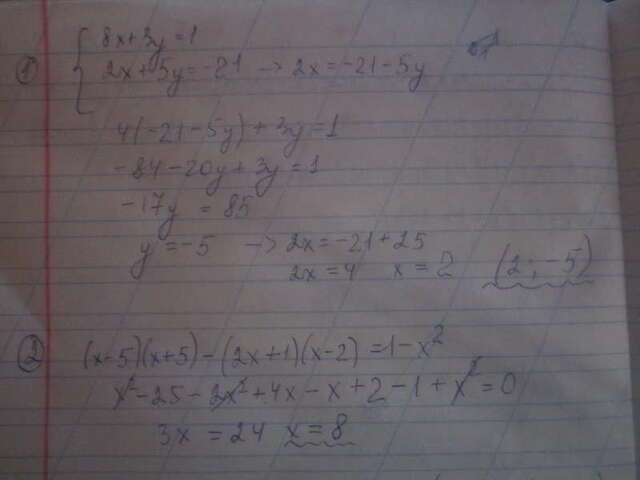 ① 8x+3y=1
2x+5y=-21 → 2x=-21-5y
4(-21-5y)+3y=1
-84-20y+3y=1
-17y = 85
y=-5 → 2x=-21+25
2x=4 x=2 (2;-5)
② (x-5)(x+5)-(2x+1)(x-2)=1-x²
x²-25-2x²+4x-x+2-1+x²=0
3x=24 x=8